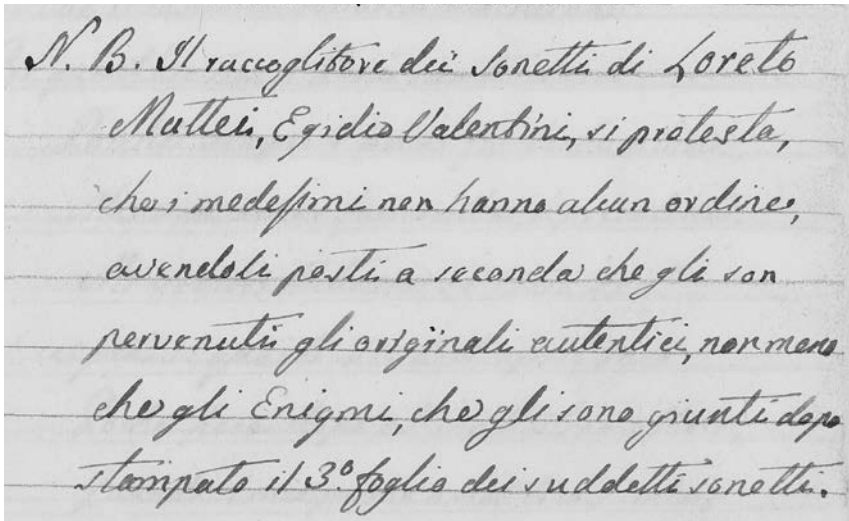 N. B. Il raccoglitore dei sonetti di Loreto
Mattei, Egidio Valentini, si protesta,
che i medesimi non hanno alcun ordine,
avendoli posti a seconda che gli son
pervenuti gli originali autentici, non meno
che gli Enigmi, che gli sono giunti dopo
stampato il 3º foglio dei suddetti sonetti.